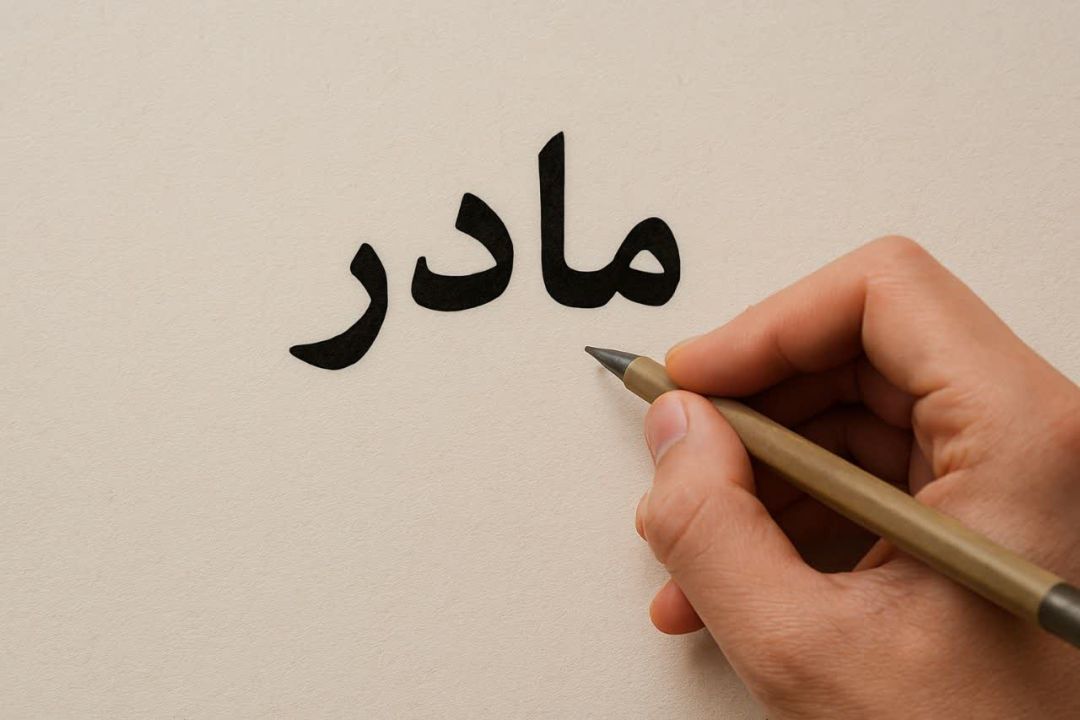 مادر